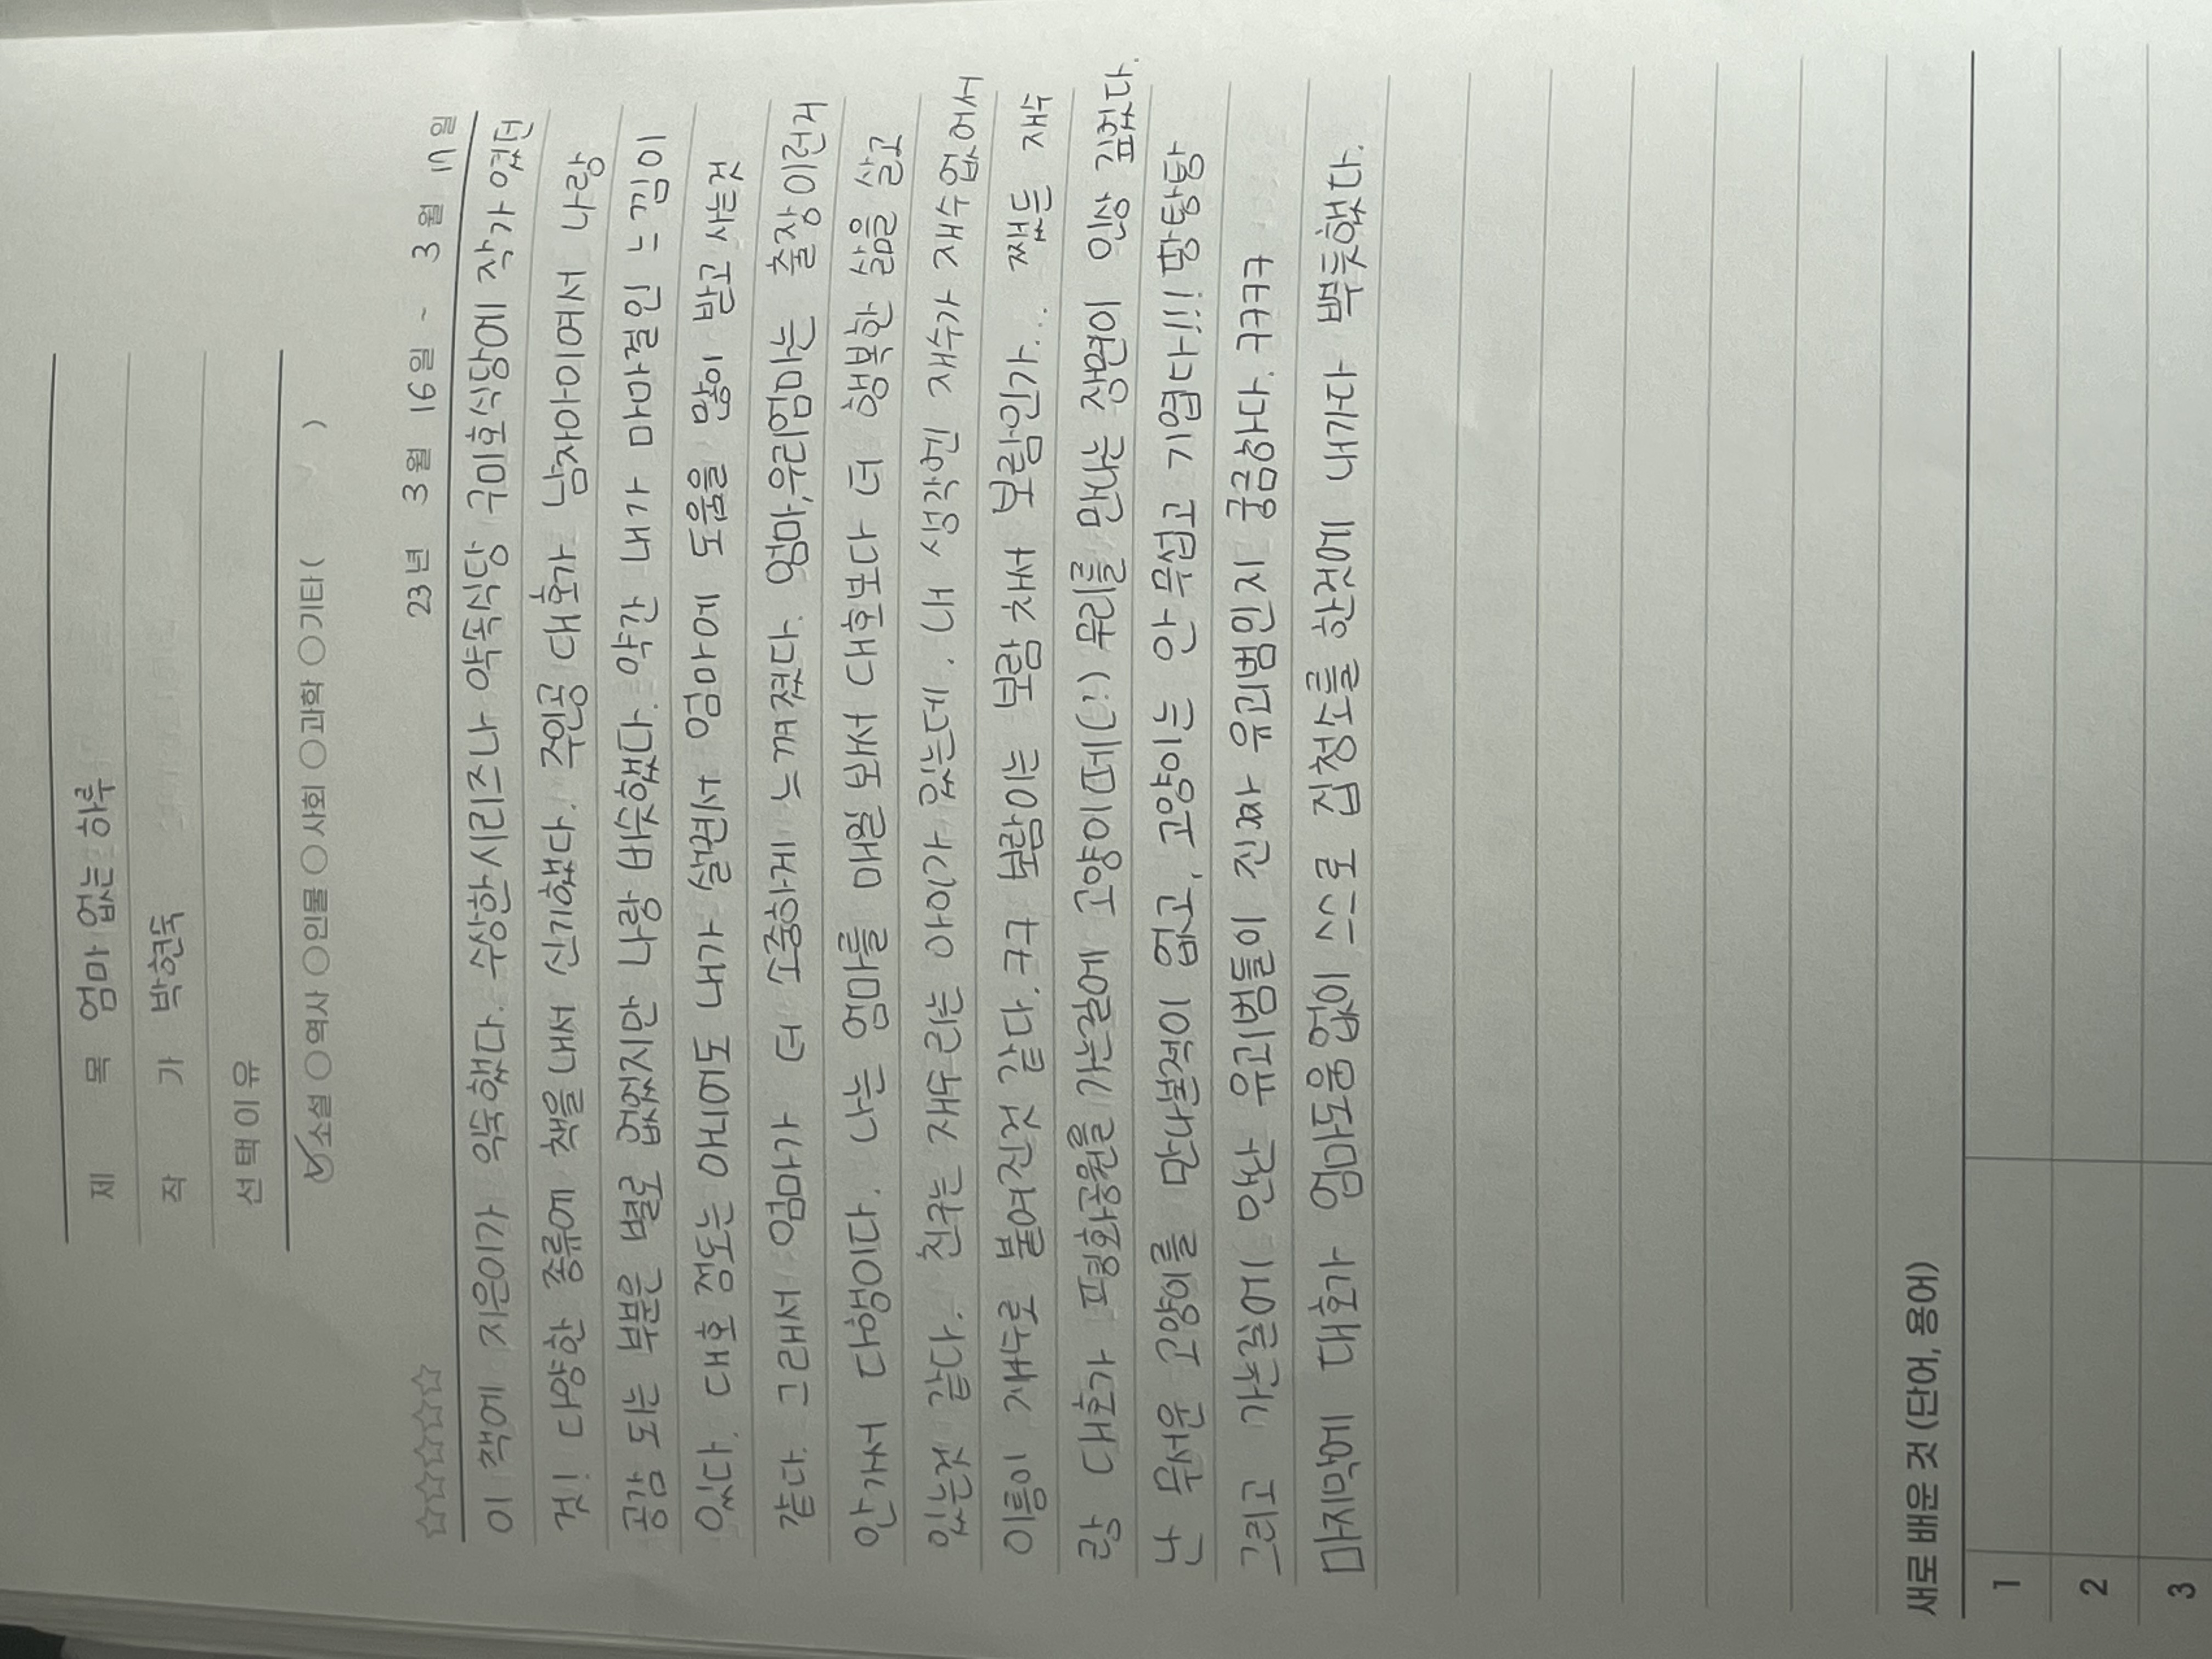 제 목 엄마 없는 하루
작 가 박현숙
선택이유
소설 역사 인물 사회 과학 기타( )
23년 3월 16일 ~ 3월 17일
이 책에 지은이가 익숙했다. 수상한시리즈나 약속식당 구미호식당에 작가 였던
것! 다양한 종류에 책을 내서 신기했다. 주인공 대호가 남자아이여서 나랑
공감 되는 부분은 별로 없었지만 나랑 비슷했다. 약간 내가 마마걸인 느낌이
있다. 대호 정도는 아니어도 내가 살면서 엄마에 도움을 많이 받고 사는것
같다. 그래서 엄마가 더 소중하게 느껴졌다. 엄마,우리엄마는 출장이런거
안가서 다행이다. 나는 엄마를 매일 봐서 대호보다 더 행복한 삶을 살고
있는것 같다. 친구는 재수 라는 아이가 있는데. 내 생각엔 재수가 재수없어서
이름이 재수로 붙여진것 같다.ㅋㅋ 보람이는 보람 차서 보람인가... 쨌든 재수
랑 대호가 평화공원을 가는길에 고양이떼(?) 무리를 만나는 장면이 인상 깊었다.
난 무서운 고양이를 만나본적이 없고, 고양이는 안 무섭고 기엽다!!! 땅탕탕
그리고 가는길에 만난 유괴범들이 진짜 유괴범인지 궁금하다. ㅋㅋㅋㅋ
마지막에 대호가 엄마도움없이 스스로 집청소를 한것에 내가다 뿌듯했다.
새로 배운 것 (단어, 용어)
1
2
3